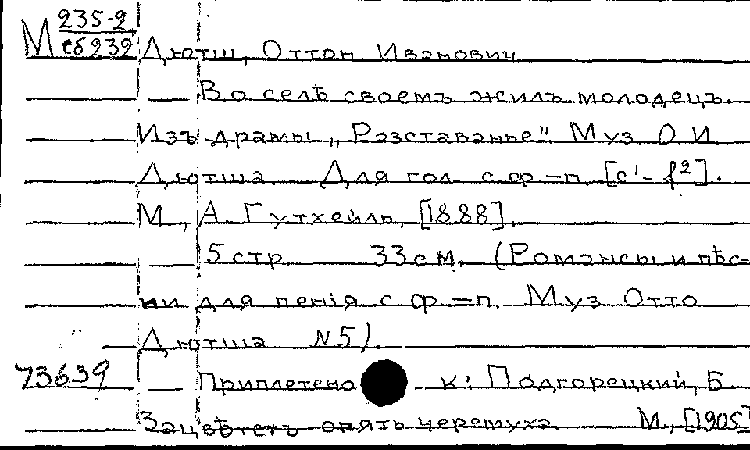 М 235-2
сб 232 Дютш, Оттон Иванович
Во селѣ своемъ жилъ молодецъ.
Изъ драмы „Разставанье“ Муз О И
Дютша Для гол. с ф-п. [c¹-f²].
М., А. Гутхейль, [1888].
5 стр 33 см. (Романсы и пѣс-
ни для пенiя с ф.-п. Муз Отто
Дютша N5).
73639 Приплетено к: Подгорецкий, Б
Зацвѣтетъ опять черемуха. М., [1905]